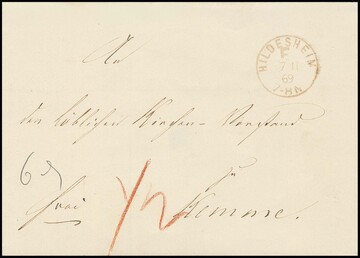 HILDESHEIM
7 11
69
7-8 N
An
den löblichen Kirchen-Vorstand
zu
frei
1/2